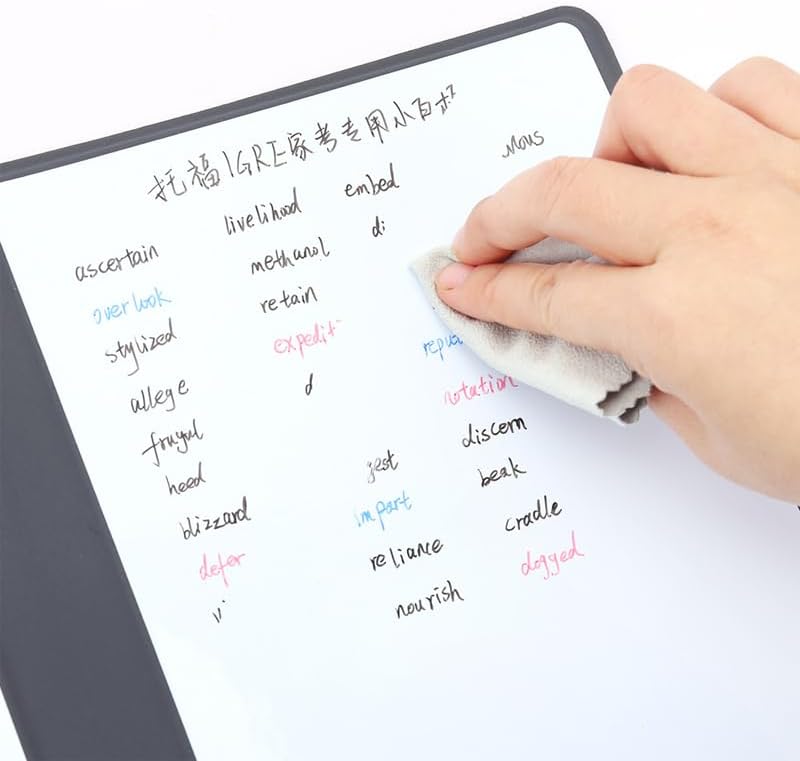 托福/GRE家考专用小白
ascertain
overlook
stylized
allege
frugul
heed
blizzard
defer
livelihood
methanol
retain
expedit
d
embed
di
impart
reliance
nourish
notation
discern
beak
cradle
dogged